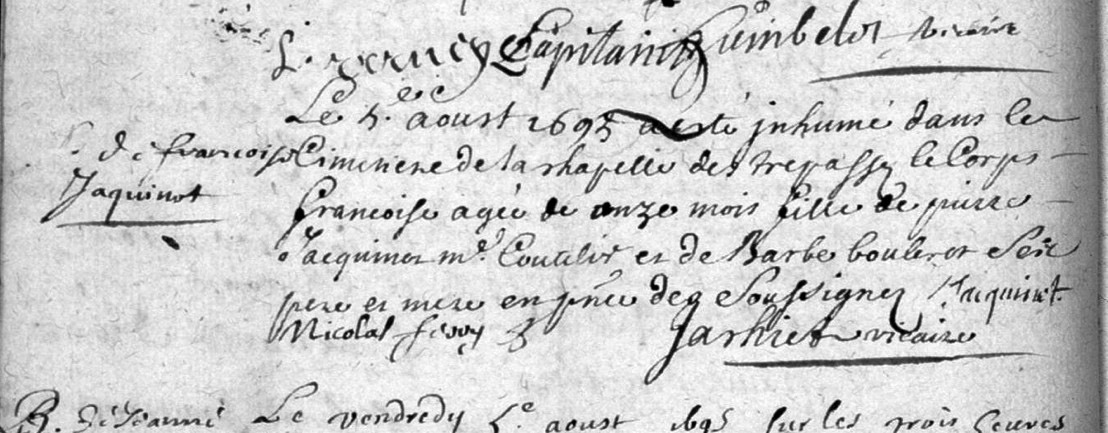 Capitain Humbelot vicaire
Le 5.e aoust 1695 a esté jnhumé dans le
S. de francoise Cimetiere de la chapelle des trepassez le Corps
Jaquinot
francoise agée de onze mois fille de pierre
Jacquinot m.d Coutelier et de Barbe boulerot Ses
pere et mere en pñce des Soussignez Jacquinot
Nicolas ferry Jarhiet vicaire
B. de Jeanne Le vendredy 5.e aoust 1695 sur les trois heures